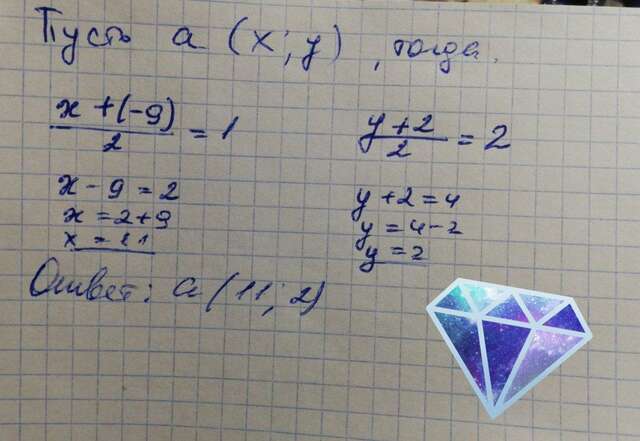 Пусть а (x; y), тогда
x + (-9) / 2 = 1
y + 2 / 2 = 2
x - 9 = 2
y + 2 = 4
x = 2 + 9
y = 4 - 2
x = 11
y = 2
Ответ: а (11; 2)